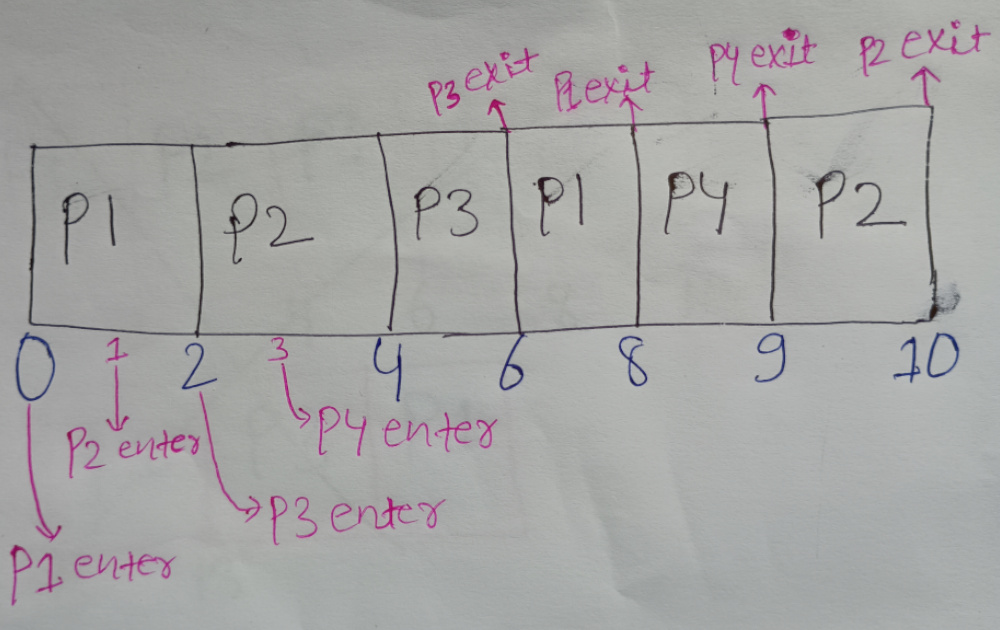 P3 exit P1 exit P4 exit P2 exit
P1 P2 P3 P1 P4 P2
0 1 2 3 4 6 8 9 10
P2 enter P4 enter
P3 enter
P1 enter